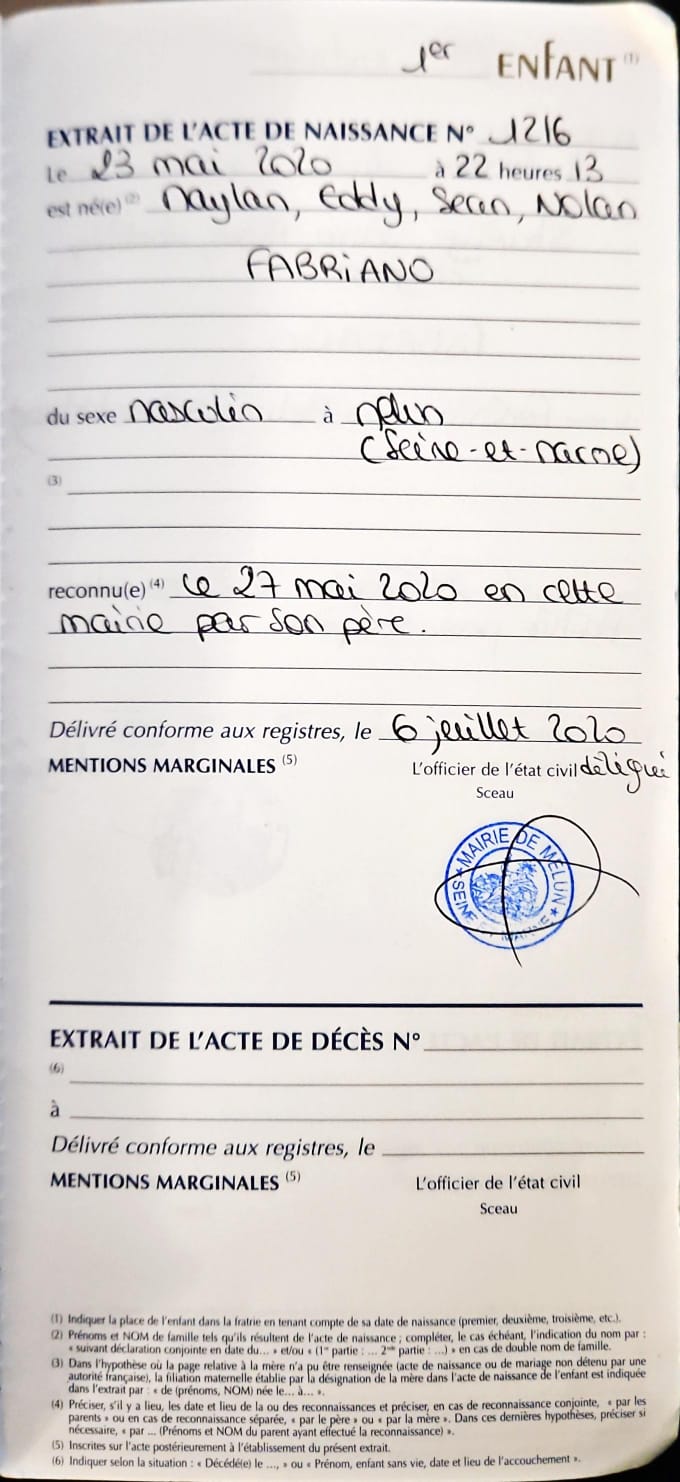 1er ENFANT (1)
EXTRAIT DE L'ACTE DE NAISSANCE N° 1216
Le 23 mai 2020 à 22 heures 13
est né(e) (2) Naylan, Eddy, Sean, Nolan
FABRIANO
du sexe masculin à Melun
(Seine-et-Marne)
(3)
reconnu(e) (4) le 27 mai 2020 en cette
mairie par son père.
Délivré conforme aux registres, le 6 juillet 2020
MENTIONS MARGINALES (5) L'officier de l'état civil délégué
Sceau
MAIRIE DE MELUN
SEINE
EXTRAIT DE L'ACTE DE DÉCÈS N°
(6)
à
Délivré conforme aux registres, le
MENTIONS MARGINALES (5) L'officier de l'état civil
Sceau
(1) Indiquer la place de l'enfant dans la fratrie en tenant compte de sa date de naissance (premier, deuxième, troisième, etc.).
(2) Prénoms et NOM de famille tels qu'ils résultent de l'acte de naissance ; compléter, le cas échéant, l'indication du nom par :
« suivant déclaration conjointe en date du... » et/ou « (1re partie : ... 2nde partie : ...) » en cas de double nom de famille.
(3) Dans l'hypothèse où la page relative à la mère n'a pu être renseignée (acte de naissance ou de mariage non détenu par une
autorité française), la filiation maternelle établie par la désignation de la mère dans l'acte de naissance de l'enfant est indiquée
dans l'extrait par : « de (prénoms, NOM) née le... à... ».
(4) Préciser, s'il y a lieu, les date et lieu de la ou des reconnaissances et préciser, en cas de reconnaissance conjointe, « par les
parents » ou en cas de reconnaissance séparée, « par le père » ou « par la mère ». Dans ces dernières hypothèses, préciser si
nécessaire, « par ... (Prénoms et NOM du parent ayant effectué la reconnaissance) ».
(5) Inscrites sur l'acte postérieurement à l'établissement du présent extrait.
(6) Indiquer selon la situation : « Décédé(e) le ..., » ou « Prénom, enfant sans vie, date et lieu de l'accouchement ».